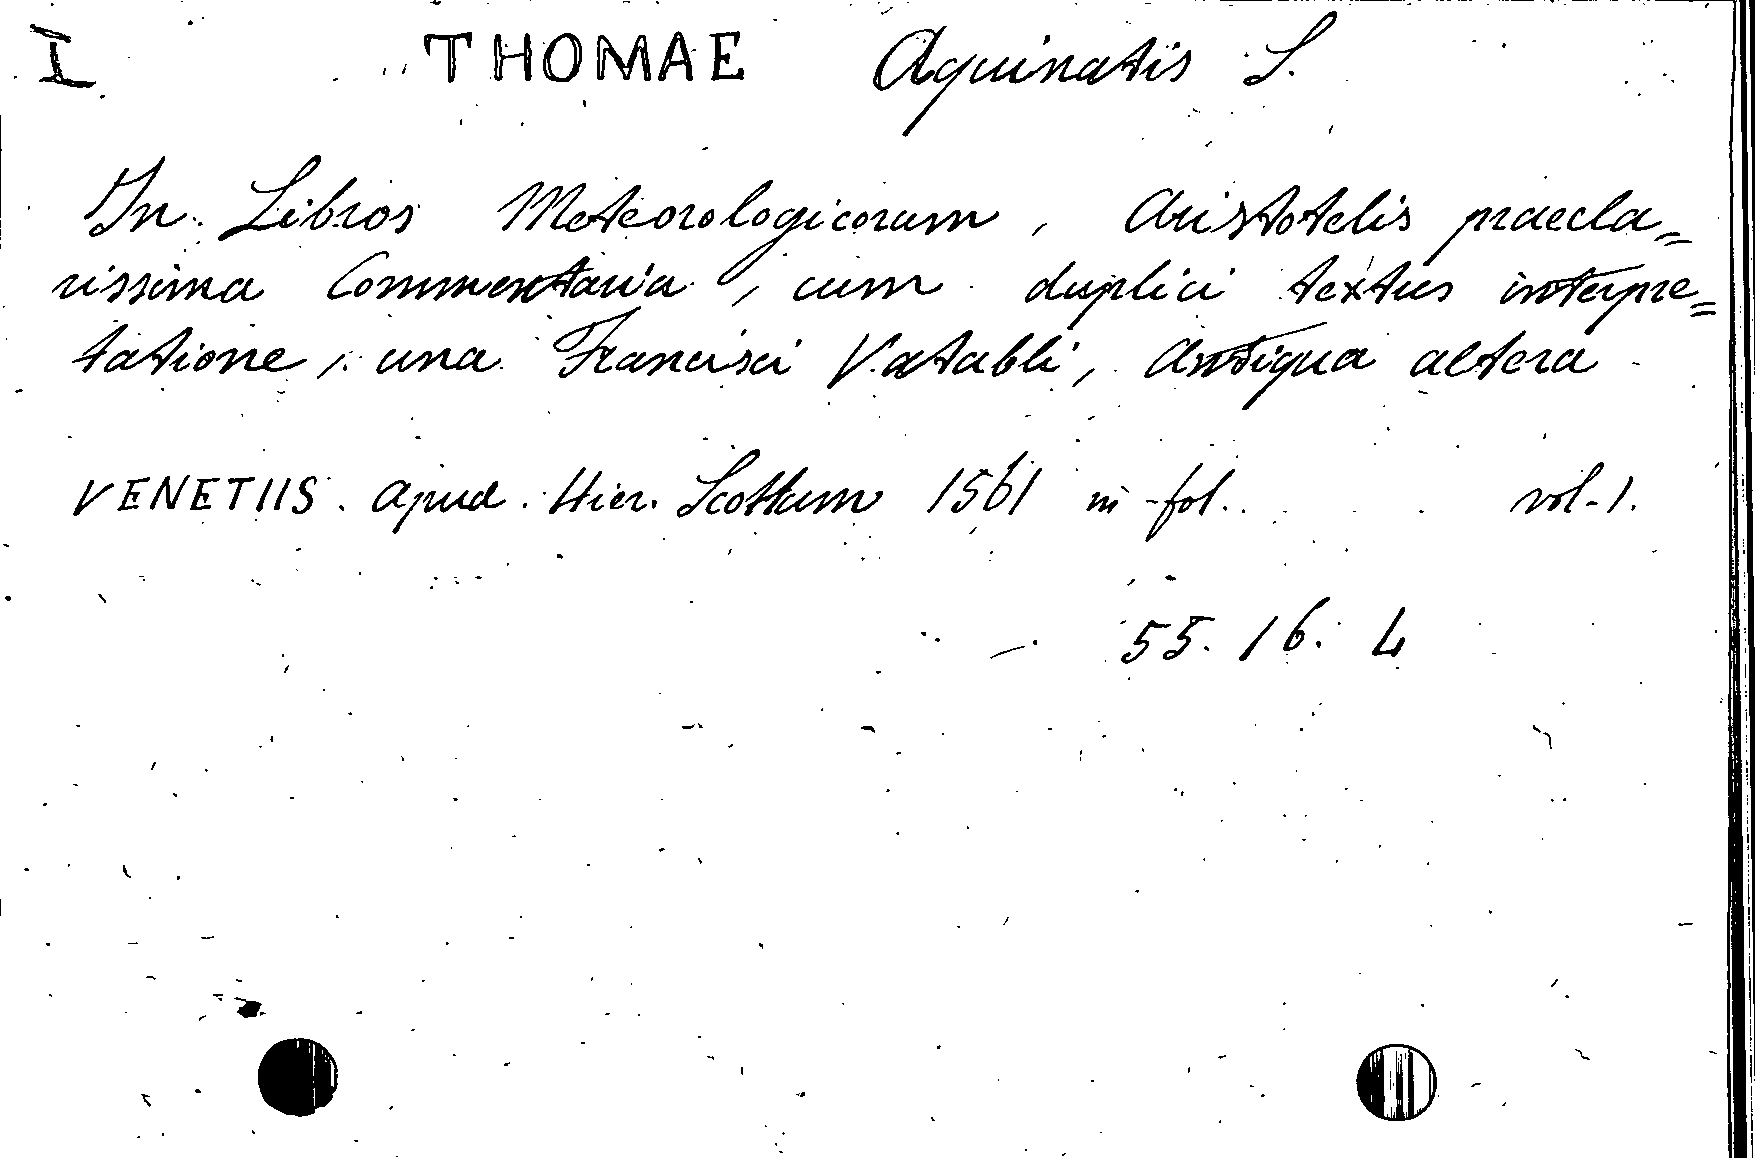 I THOMAE Aquinatis S.
In Libros Meteorologicorum, Aristotelis praecla=
rissima Commentaria, cum duplici textus interpre=
tatione, una Francisci Vatabli, Antiqua altera
VENETIIS. Apud. Hier. Scottum 1561 in-fol. vol-1.
55. 16. 4